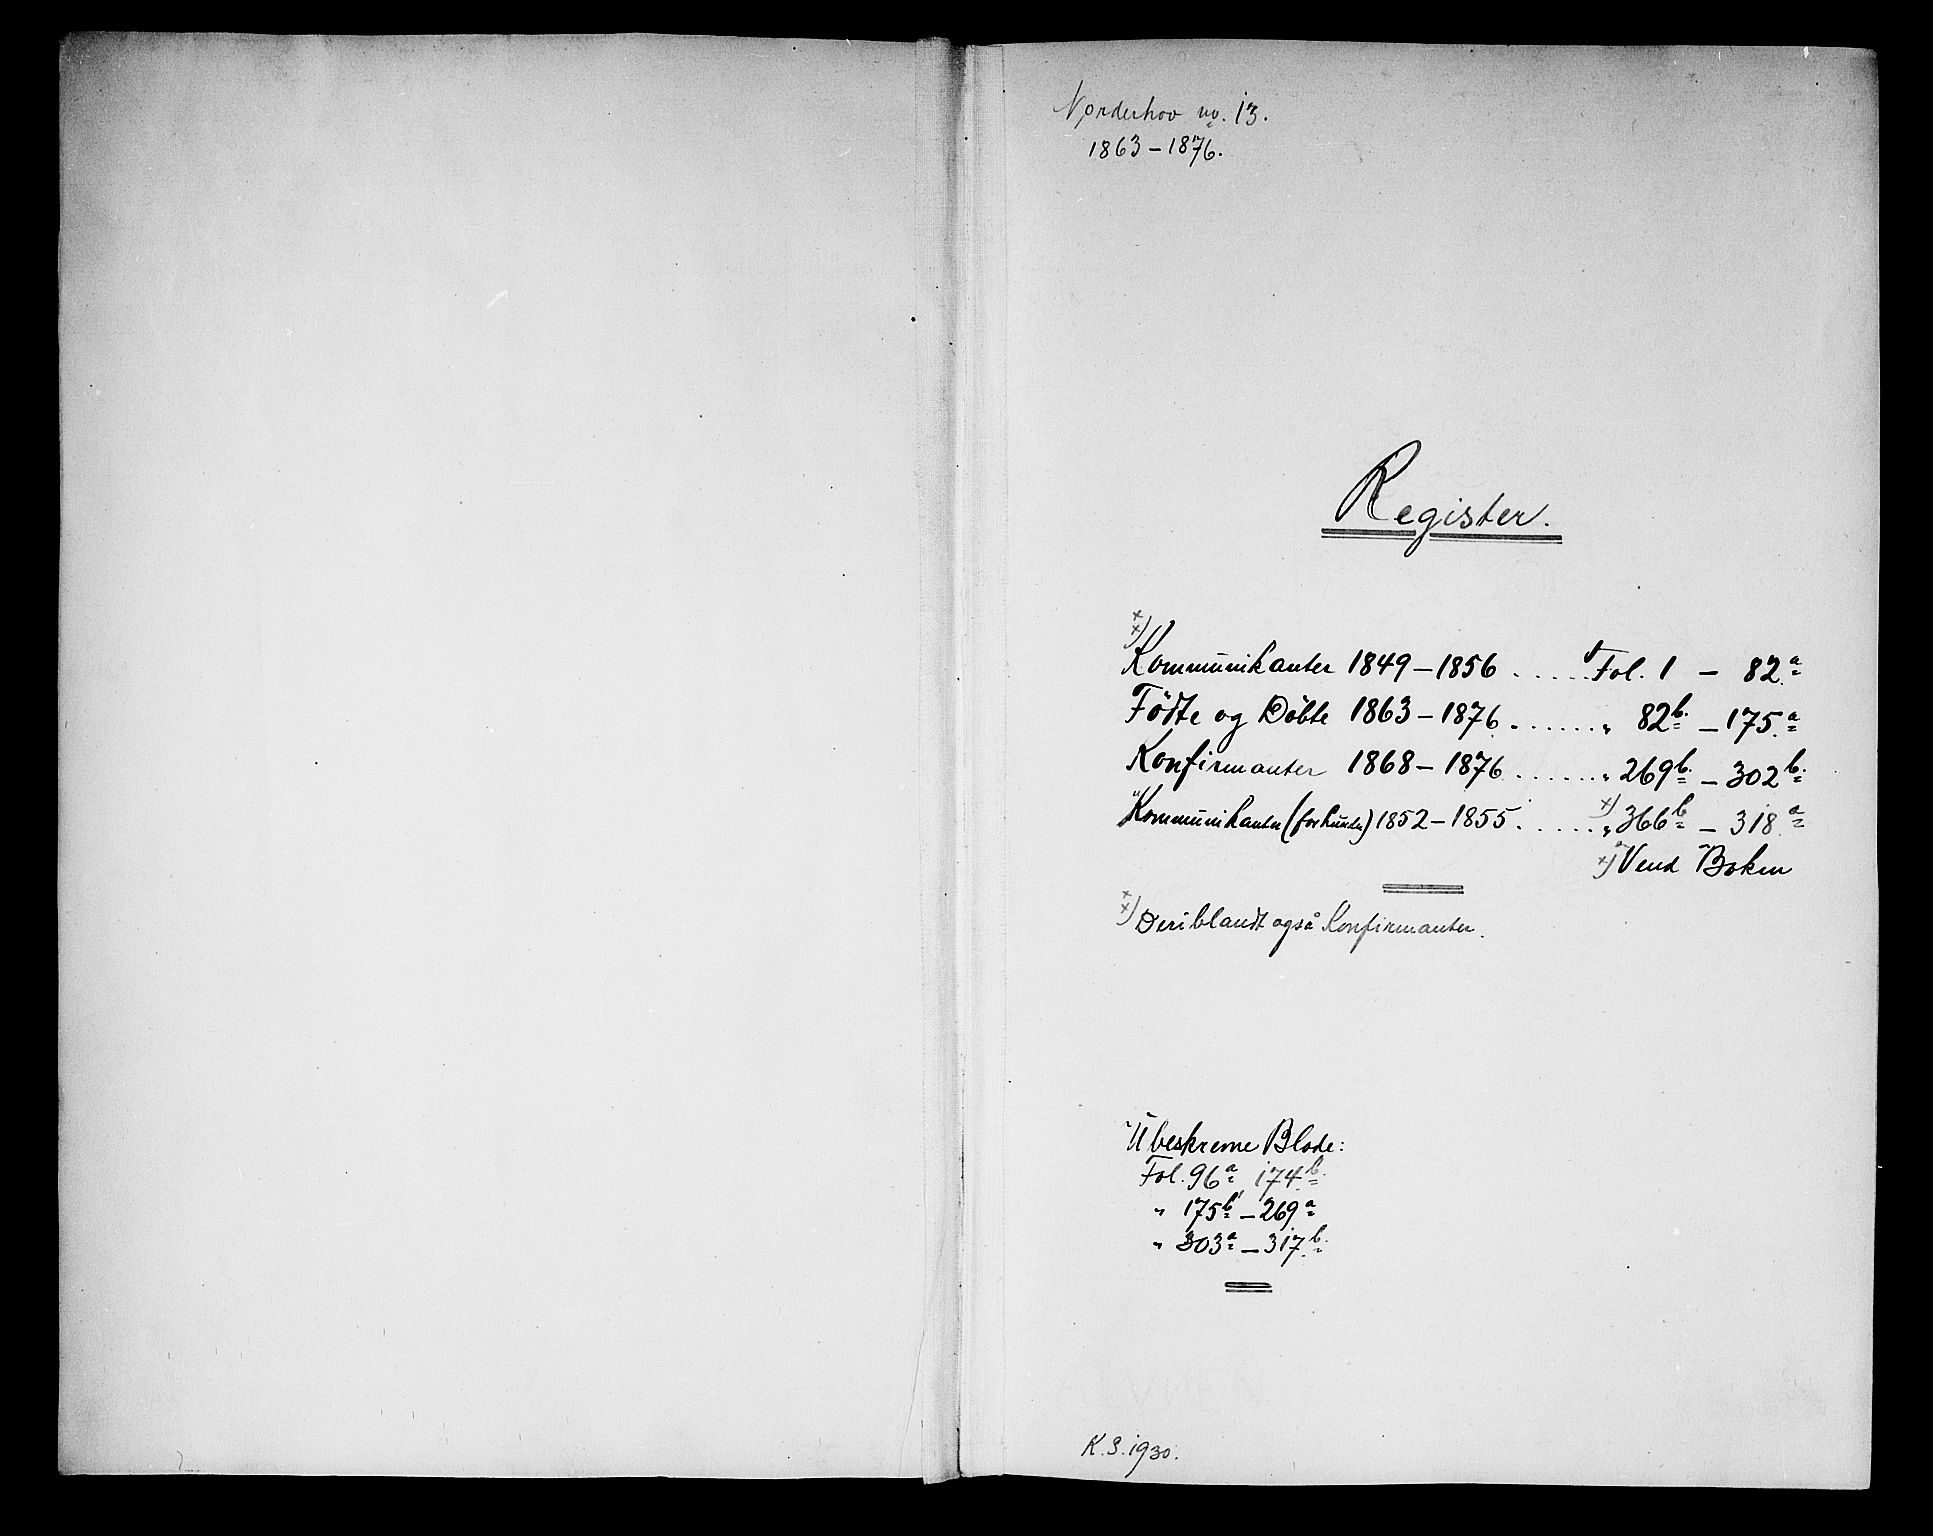 Norderhov no. 13.
1863-1876.
Register.
xx) Kommunikanter 1849-1856 ..... Fol. 1 - 82a
Födte og Döbte 1863-1876 ...... " 82b - 175a
Konfirmanter 1868-1876 ...... " 269b - 302b
Kommunikanter (forhünder) 1852-1855 ...... " x) 366b - 318a
x) Vend Boken
xx) Deriblandt også Konfirmanter.
Ubeskrevne Blade:
Fol. 96a, 174b
" 175b - 269a
" 303a - 317b
K.S. 1930.